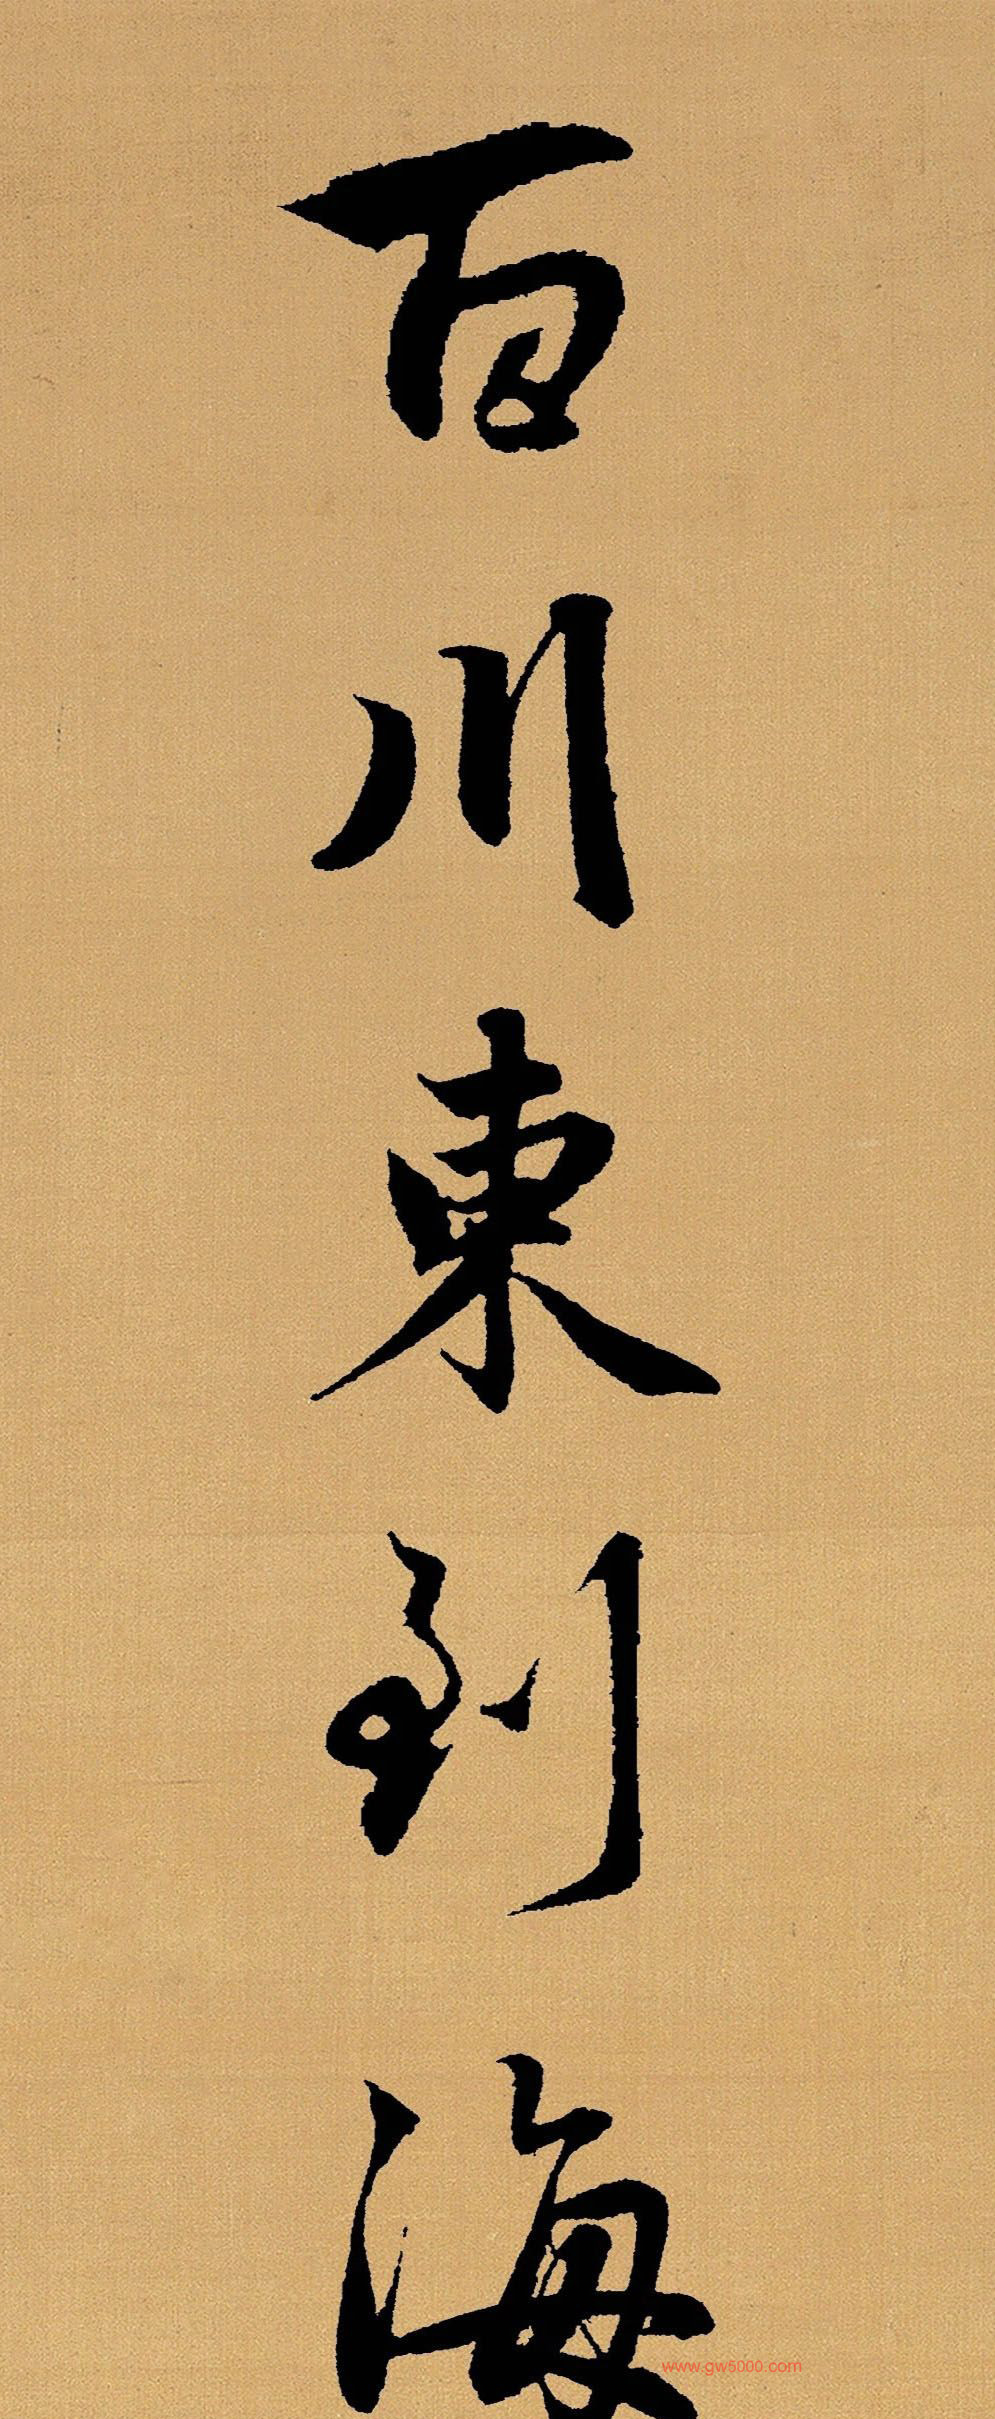 百川東到海
www.gw5000.com